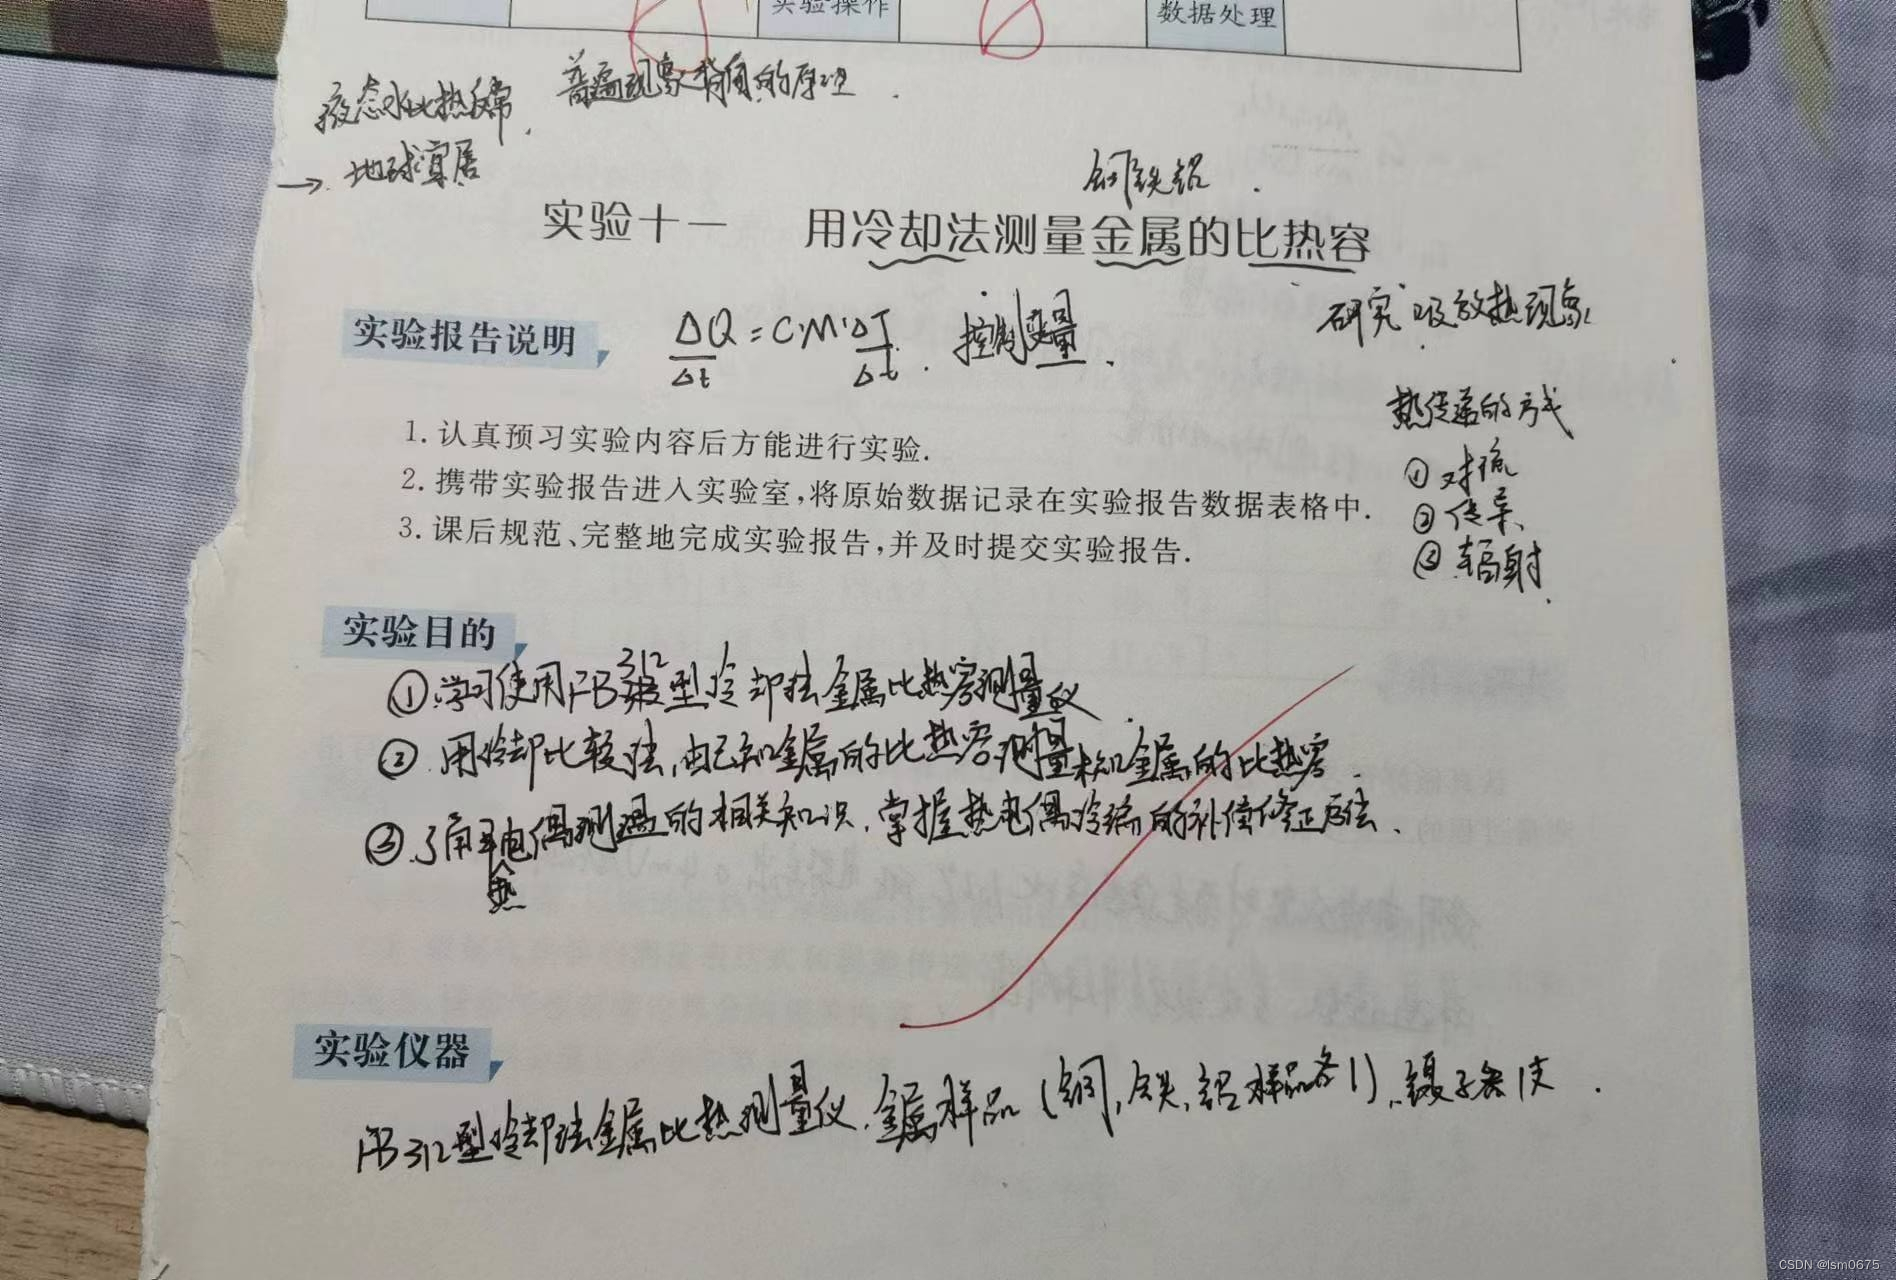 实验操作
数据处理
普遍现象背后的原理.
液态水比热反常,
→ 地球宜居
铜铁铝.
实验十一 用冷却法测量金属的比热容
研究"吸放热现象
实验报告说明
ΔQ/Δt = C·M·ΔT/Δt. 控制变量.
热传递的方式
①对流
②传导
③辐射.
1. 认真预习实验内容后方能进行实验.
2. 携带实验报告进入实验室,将原始数据记录在实验报告数据表格中.
3. 课后规范、完整地完成实验报告,并及时提交实验报告.
实验目的
①学习使用FB312型冷却法金属比热容测量仪.
②用冷却比较法,由已知金属的比热容测量未知金属的比热容.
③了解热电偶测温的相关知识,掌握热电偶冷端的补偿修正方法.
实验仪器
FB312型冷却法金属比热测量仪.金属样品(铜,铁,铝样品各1),镊子
CSDN @lsm0675